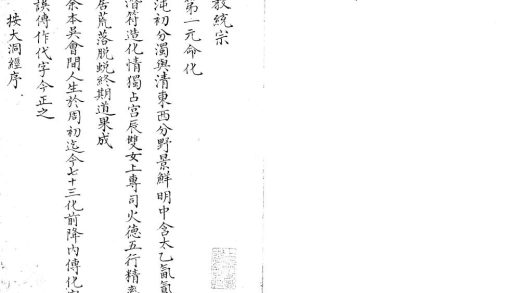 教統宗
第一元命化
沌初分濁與清東西分野景鮮明中含太乙氤氳
潛符造化情獨占宫辰雙女上專司火德五行精
居荒落脫蛻終期道果成
余本吳會間人生於周初迄今七十三化前降内傳化
誤傳作代字今正之
按大洞經序